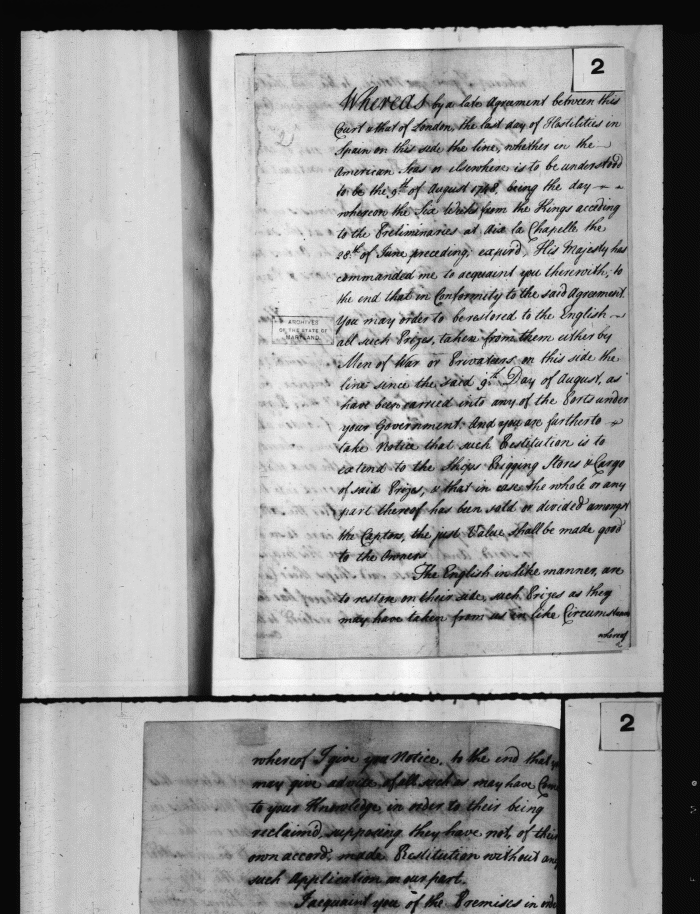 2
2
Whereas by a late Agreement between this
Court & that of London, the last day of Hostilities in
Spain on this side the line, whether in the
American Seas or elsewhere is to be understood
to be the 9th of August 1748, being the day
whereon the Six Weeks from the Kings acceding
to the Preliminaries at Aix la Chapelle the
28th of June preceding, expir'd, His Majesty has
commanded me to acquaint you therewith, to
the end that in Conformity to the said Agreement
You may order to be restored to the English
all such Prizes, taken from them either by
Men of War or Privateers on this side the
line since the said 9th Day of August, as
have been carried into any of the Ports under
your Government. And you are further to
take Notice that such Restitution is to
extend to the Ships Rigging Stores & Cargo
of said Prizes, & that in case the whole or any
part thereof has been sold or divided amongst
the Captors, the just Value shall be made good
to the Owners
The English in like manner, are
to restore on their side, such Prizes as they
may have taken from us in like Circumstances
whereof
ARCHIVES
OF THE STATE OF
MARYLAND
2
whereof I give you Notice, to the end that
may give advice of all such as may have Come
to your Knowledge in order to their being
reclaim'd, supposing they have not, of their
own accord, made Restitution without any
such application on our part.
I acquaint you of the Premises in order